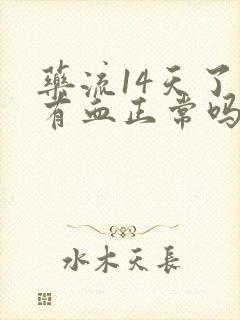 藥流14天了
有血正常吗
水木天長